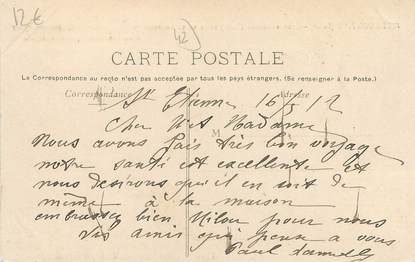 12€
42)
CARTE POSTALE
La Correspondance au recto n'est pas acceptée par tous les pays étrangers, (Se renseigner à la Poste.)
Correspondance Adresse
St Etienne 16/5 12
Cher Madame
M
Nous avons fais très bon voyage
notre santé est excellente et
nous desirons qu'il en soit de
même à la maison
embrassez bien Milou pour nous
Vos amis qui pense a vous
Paul